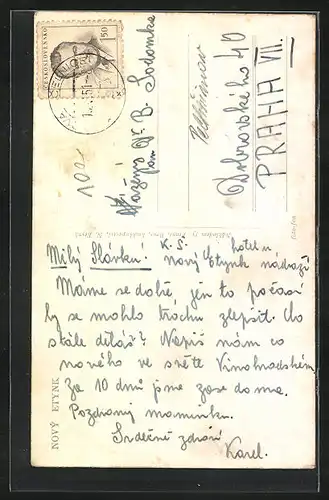 ČESKOSLOVENSKO
1.50
51
Vážený pan
Dr. B. Sodomka
Dobrovského 40
PRAHA VII.
102
NOVÝ ETYNK
Milý Slávku! K. S. hotel u
nový Etynk nádraží
Máme se dobře, jen to počasí
by se mohlo trochu zlepšit. Co
stále děláš? Napiš nám co
nového ve světě Vinohradském,
Za 10 dnů jsme zase doma.
Pozdravuj maminku.
Srdečně zdraví
Karel.